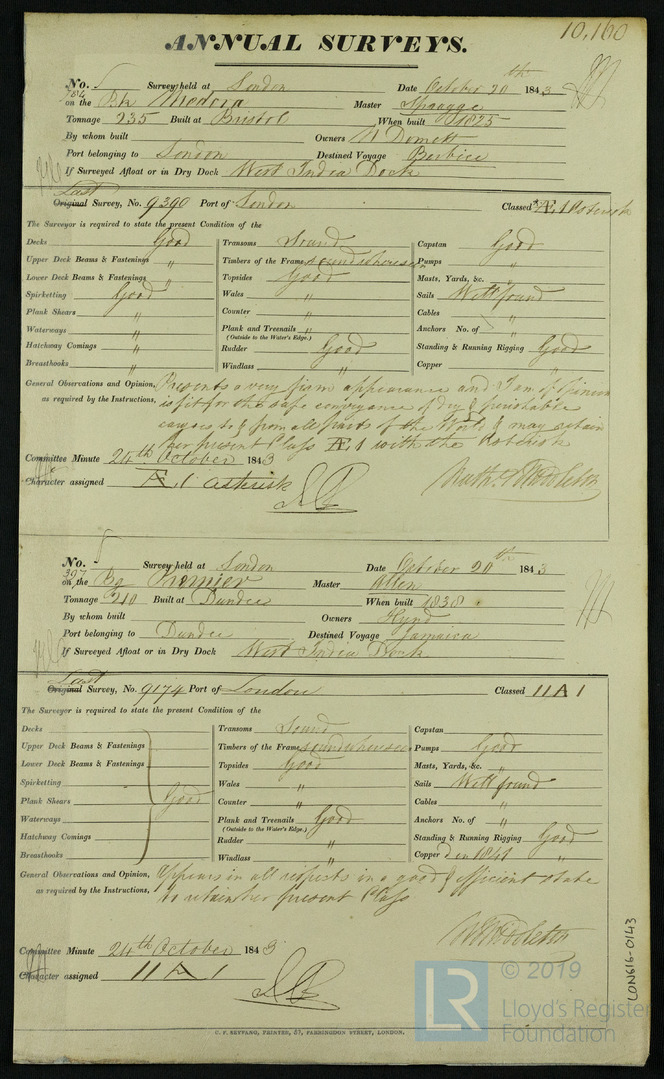 10,160
ANNUAL SURVEYS.
No. Survey held at London Date October 20th 1843
on the Bk Master Spragge
Tonnage 235 Built at Bristol When built 1825
By whom built Owners Domett
Port belonging to London Destined Voyage Berbice
If Surveyed Afloat or in Dry Dock West India Dock
Last
Original Survey, No. 9390 Port of London Classed Æ 1 Asterisk
The Surveyor is required to state the present Condition of the
Decks Good Transoms Sound Capstan Good
Upper Deck Beams & Fastenings " Timbers of the Frame, sound where seen Pumps "
Lower Deck Beams & Fastenings " Topsides Good Masts, Yards, &c. "
Spirketting Good Wales " Sails Well found
Plank Shears " Counter " Cables "
Waterways " Plank and Treenails " Anchors No. of "
(Outside to the Water's Edge.)
Hatchway Comings " Rudder Good Standing & Running Rigging Good
Breasthooks " Windlass " Copper "
General Observations and Opinion, Presents a very firm appearance and I am of Opinion
as required by the Instructions, is fit for the safe conveyance of dry & perishable
cargoes to & from all parts of the World & may retain
her present Class Æ 1 with the Asterisk
Committee Minute 24th October 1843
Character assigned Æ 1 asterisk
No. Survey held at London Date October 20th 1843
397
on the Bg Premier Master Allen
Tonnage 210 Built at Dundee When built 1838
By whom built Owners Hynd
Port belonging to Dundee Destined Voyage Jamaica
If Surveyed Afloat or in Dry Dock West India Dock
Last
Original Survey, No. 9174 Port of London Classed 11 A 1
The Surveyor is required to state the present Condition of the
Decks Transoms Sound Capstan
Upper Deck Beams & Fastenings Timbers of the Frame, sound where seen Pumps Good
Lower Deck Beams & Fastenings Topsides Good Masts, Yards, &c. "
Spirketting Wales " Sails Well found
Plank Shears Good Counter " Cables "
Waterways Plank and Treenails Good Anchors No. of "
(Outside to the Water's Edge.)
Hatchway Comings Rudder " Standing & Running Rigging Good
Breasthooks Windlass " Copper 1841 "
General Observations and Opinion, Appears in all respects in a good & efficient state
as required by the Instructions, to retain her present Class
Committee Minute 24th October 1843
Character assigned 11 A 1
C. F. SEYFANG, PRINTER, 57, FARRINGDON STREET, LONDON.
LON616-0143
LR © 2019
Lloyd's Register
Foundation